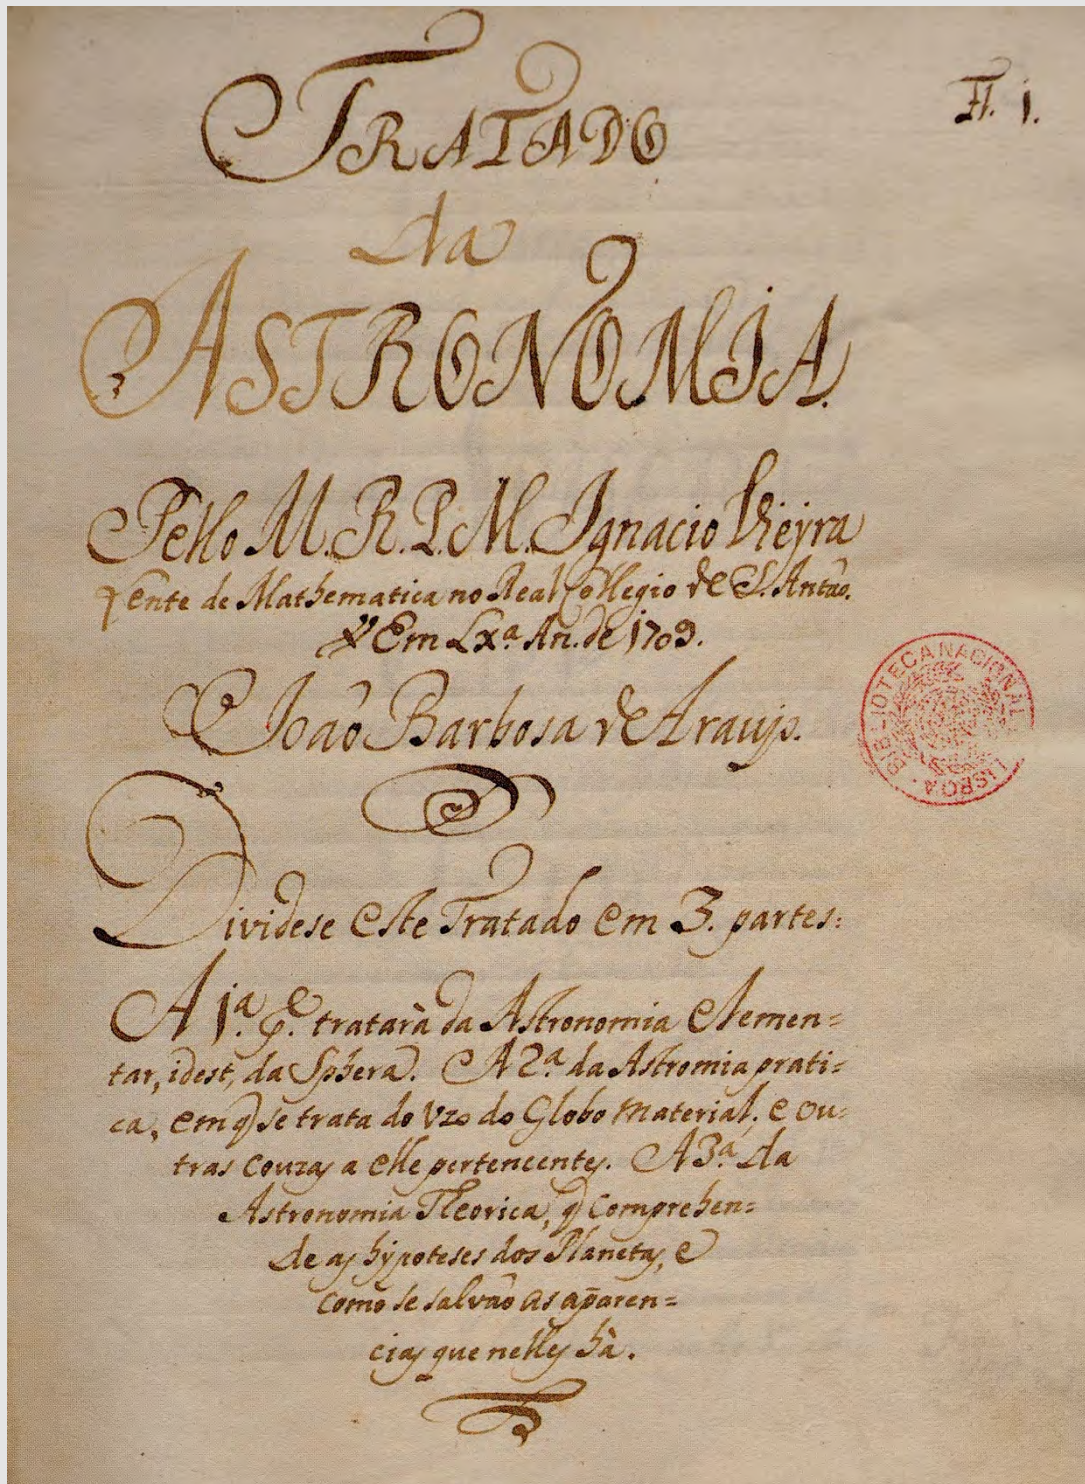 Fl. 1.
TRATADO
da
ASTRONOMIA.
Pello M. R. P. M. Ignacio Vieyra
Lente de Mathematica no Real Collegio de S. Antão.
Em Lxª. An. de 1709.
João Barbosa de Araujo.
Dividese este Tratado em 3. partes:
A 1ª. pᵉ. tratarà da Astronomia elemen=
tar, idest, da Sphera. A 2ª. da Astromia prati=
ca, em q̃ se trata do vzo do Globo material. e ou=
tras couzas a elle pertencentes. A 3ª. da
Astronomia Theorica, q̃ comprehen=
de as hypoteses dos Planetas, e
como se salvão as ap̄aren=
cias que nelles hà.
BIBLIOTECA NACIONAL
LISBOA